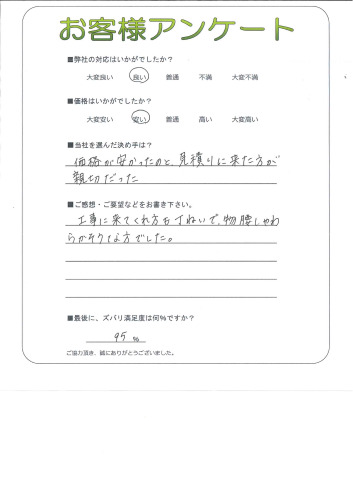 お客様アンケート
■弊社の対応はいかがでしたか?
大変良い 良い 普通 不満 大変不満
■価格はいかがでしたか?
大変安い 安い 普通 高い 大変高い
■当社を選んだ決め手は?
価格が安かったのと、見積りに来た方が
親切だった
■ご感想・ご要望などをお書き下さい。
工事に来てくれ方も丁ねいで、物腰しやわ
らかそうな方でした。
■最後に、ズバリ満足度は何%ですか?
95 %
ご協力頂き、誠にありがとうございました。